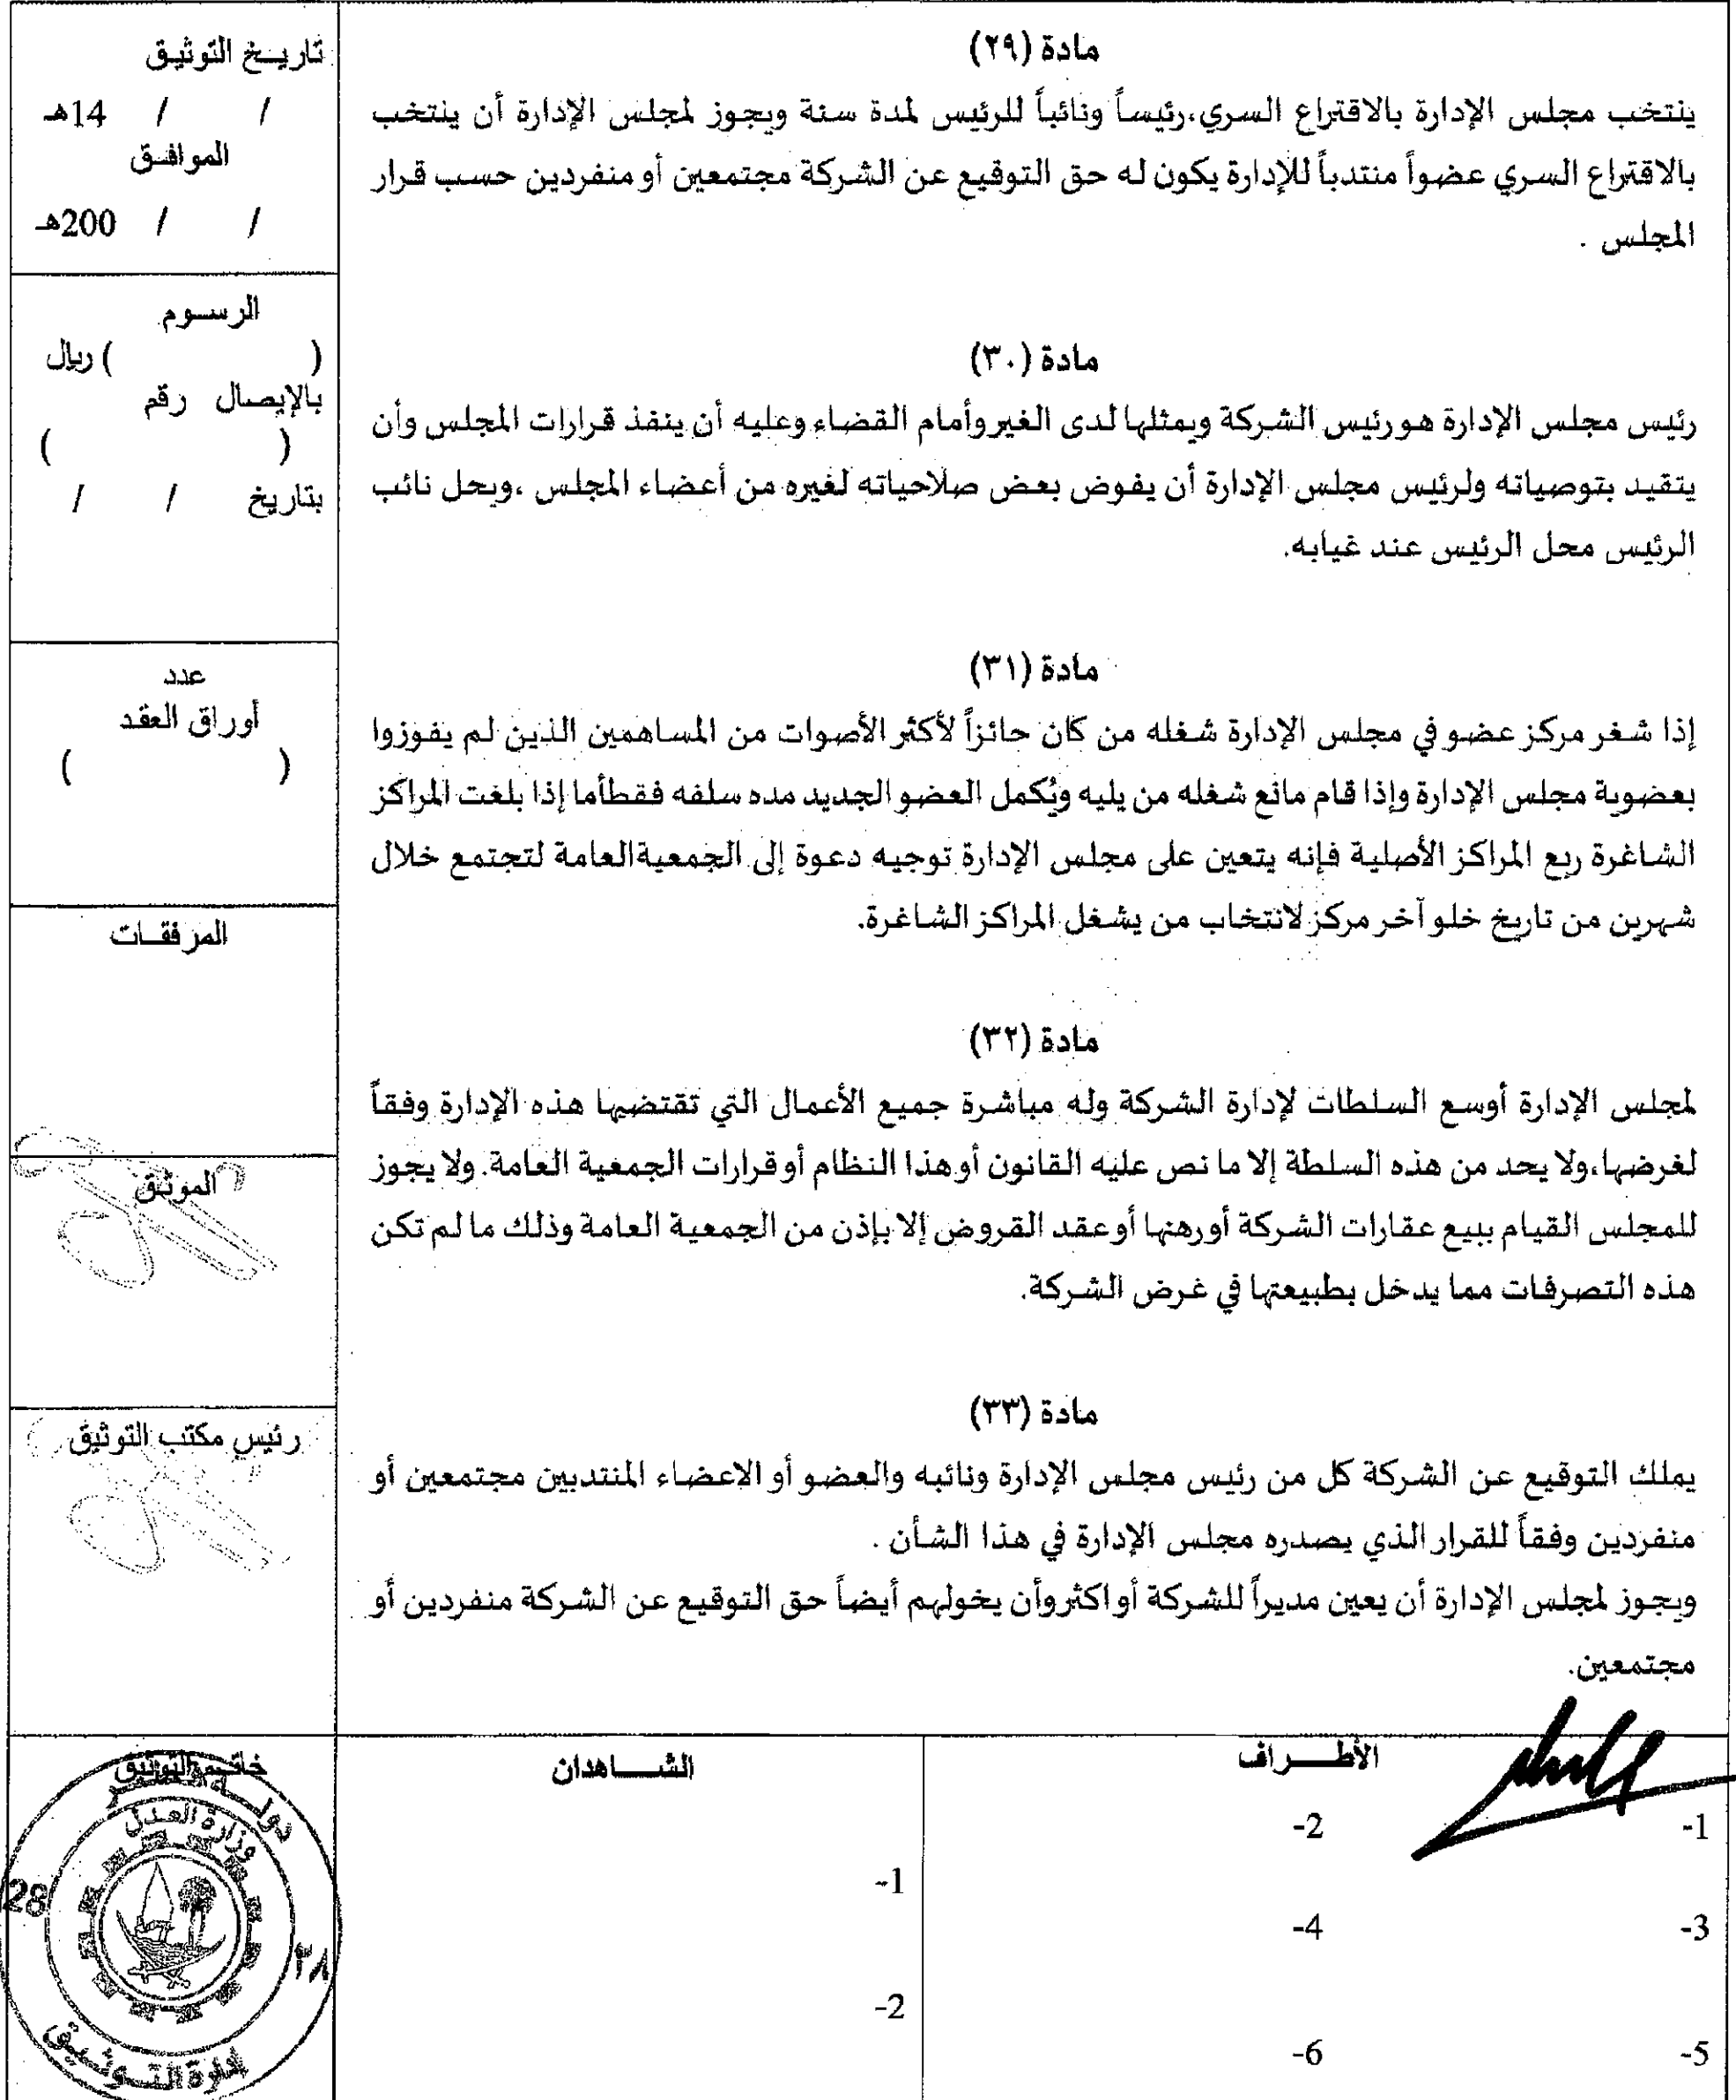 مادة (٢٩)
ينتخب مجلس الإدارة بالاقتراع السري،رئيساً ونائباً للرئيس لمدة سنة ويجوز لمجلس الإدارة أن ينتخب
بالاقتراع السري عضواً منتدباً للإدارة يكون له حق التوقيع عن الشركة مجتمعين أو منفردين حسب قرار
المجلس .
مادة (٣٠)
رئيس مجلس الإدارة هو رئيس الشركة ويمثلها لدى الغير وأمام القضاء وعليه أن ينفذ قرارات المجلس وأن
يتقيد بتوصياته ولرئيس مجلس الإدارة أن يفوض بعض صلاحياته لغيره من أعضاء المجلس ،ويحل نائب
الرئيس محل الرئيس عند غيابه.
مادة (٣١)
إذا شغر مركز عضو في مجلس الإدارة شغله من كان حائزاً لأكثر الأصوات من المساهمين الذين لم يفوزوا
بعضوية مجلس الإدارة وإذا قام مانع شغله من يليه ويُكمل العضو الجديد مده سلفه فقطأما إذا بلغت المراكز
الشاغرة ربع المراكز الأصلية فإنه يتعين على مجلس الإدارة توجيه دعوة إلى الجمعيةالعامة لتجتمع خلال
شهرين من تاريخ خلو آخر مركز لانتخاب من يشغل المراكز الشاغرة.
مادة (٣٢)
لمجلس الإدارة أوسع السلطات لإدارة الشركة وله مباشرة جميع الأعمال التي تقتضيها هذه الإدارة وفقاً
لغرضها،ولا يحد من هذه السلطة إلا ما نص عليه القانون أو هذا النظام أو قرارات الجمعية العامة. ولا يجوز
للمجلس القيام ببيع عقارات الشركة أو رهنها أو عقد القروض إلا بإذن من الجمعية العامة وذلك ما لم تكن
هذه التصرفات مما يدخل بطبيعتها في غرض الشركة.
مادة (٣٣)
يملك التوقيع عن الشركة كل من رئيس مجلس الإدارة ونائبه والعضو أو الاعضاء المنتدبين مجتمعين أو
منفردين وفقاً للقرار الذي يصدره مجلس الإدارة في هذا الشأن .
ويجوز لمجلس الإدارة أن يعين مديراً للشركة أو اكثر وأن يخولهم أيضاً حق التوقيع عن الشركة منفردين أو
مجتمعين.
تاريخ التوثيق
/ / 14هـ
الموافق
/ / 200هـ
الرسوم
( ) ريال
بالإيصال رقم
( )
بتاريخ / /
عدد
أوراق العقد
( )
المرفقات
الموثق
رئيس مكتب التوثيق
الأطراف
-1 -2
-3 -4
-5 -6
الشاهدان
-1
-2
خاتم التوثيق
دولة قطر
وزارة العدل
28 ٢٨
إدارة التوثيق